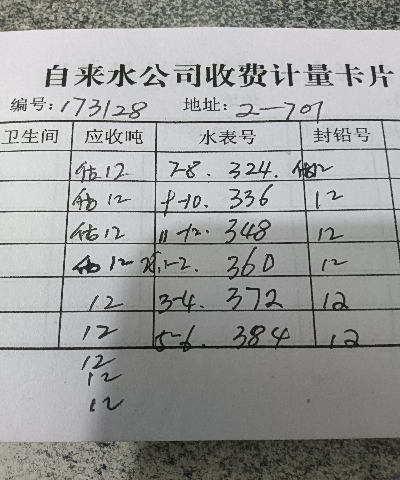 自来水公司收费计量卡片
编号: 173128 地址: 2-701
卫生间 应收吨 水表号 封铅号
估12 7-8. 324. 估12
估12 9-10. 336 12
估12 11-12. 348 12
估12 1-2. 360 12
12 3-4. 372 12
12 5-6. 384 12
12
12
12